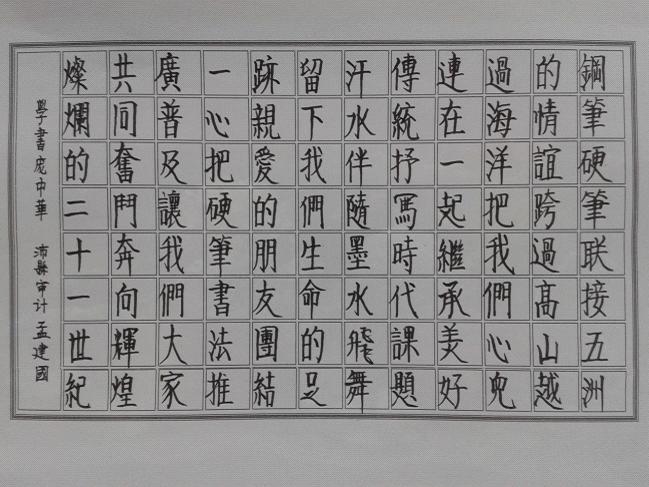 鋼筆硬筆联接五洲
的情誼跨過高山越
過海洋把我們心兒
連在一起繼承美好
傳統抒寫時代課題
汗水伴隨墨水飛舞
留下我們生命的足
跡親愛的朋友團結
一心把硬筆書法推
廣普及讓我們大家
共同奮鬥奔向輝煌
燦爛的二十一世紀
學書庞中華 沛縣审计 孟建國